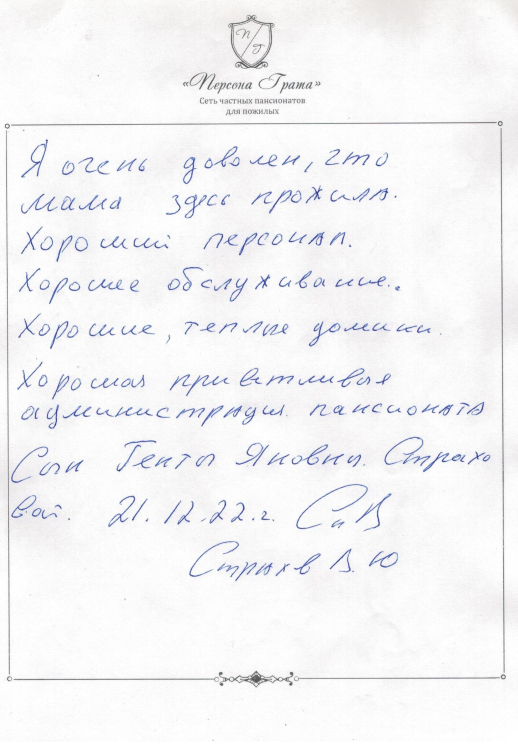 П
Г
«Персона Грата»
Сеть частных пансионатов
для пожилых
Я очень доволен, что
мама здесь прожила.
Хороший персонал.
Хорошее обслуживание.
Хорошие, теплые домики.
Хорошая приветливая
администрация пансионата
Сын Генты Яновны Страхо
вой. 21.12.22 г.
Страхов В. Ю